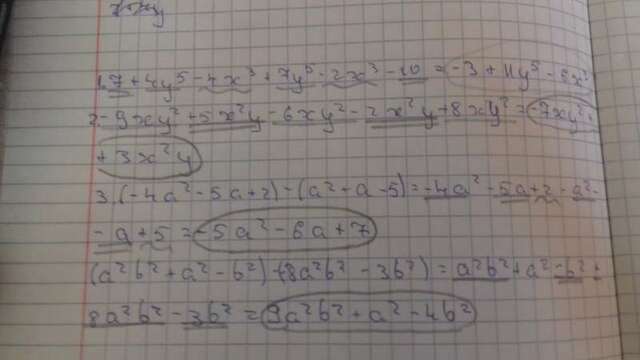 1. 7 + 4y⁵ - 4x³ + 7y⁵ - 2x³ - 10 = -3 + 11y⁵ - 6x³
2 - 9xy² + 5x²y - 6xy² - 2x²y + 8xy² = -7xy² +
+ 3x²y
3 (-4a² - 5a + 2) - (a² + a - 5) = -4a² - 5a + 2 - a² -
- a + 5 = -5a² - 6a + 7
(a²b² + a² - b²) + (8a²b² - 3b²) = a²b² + a² - b² +
8a²b² - 3b² = 9a²b² + a² - 4b²